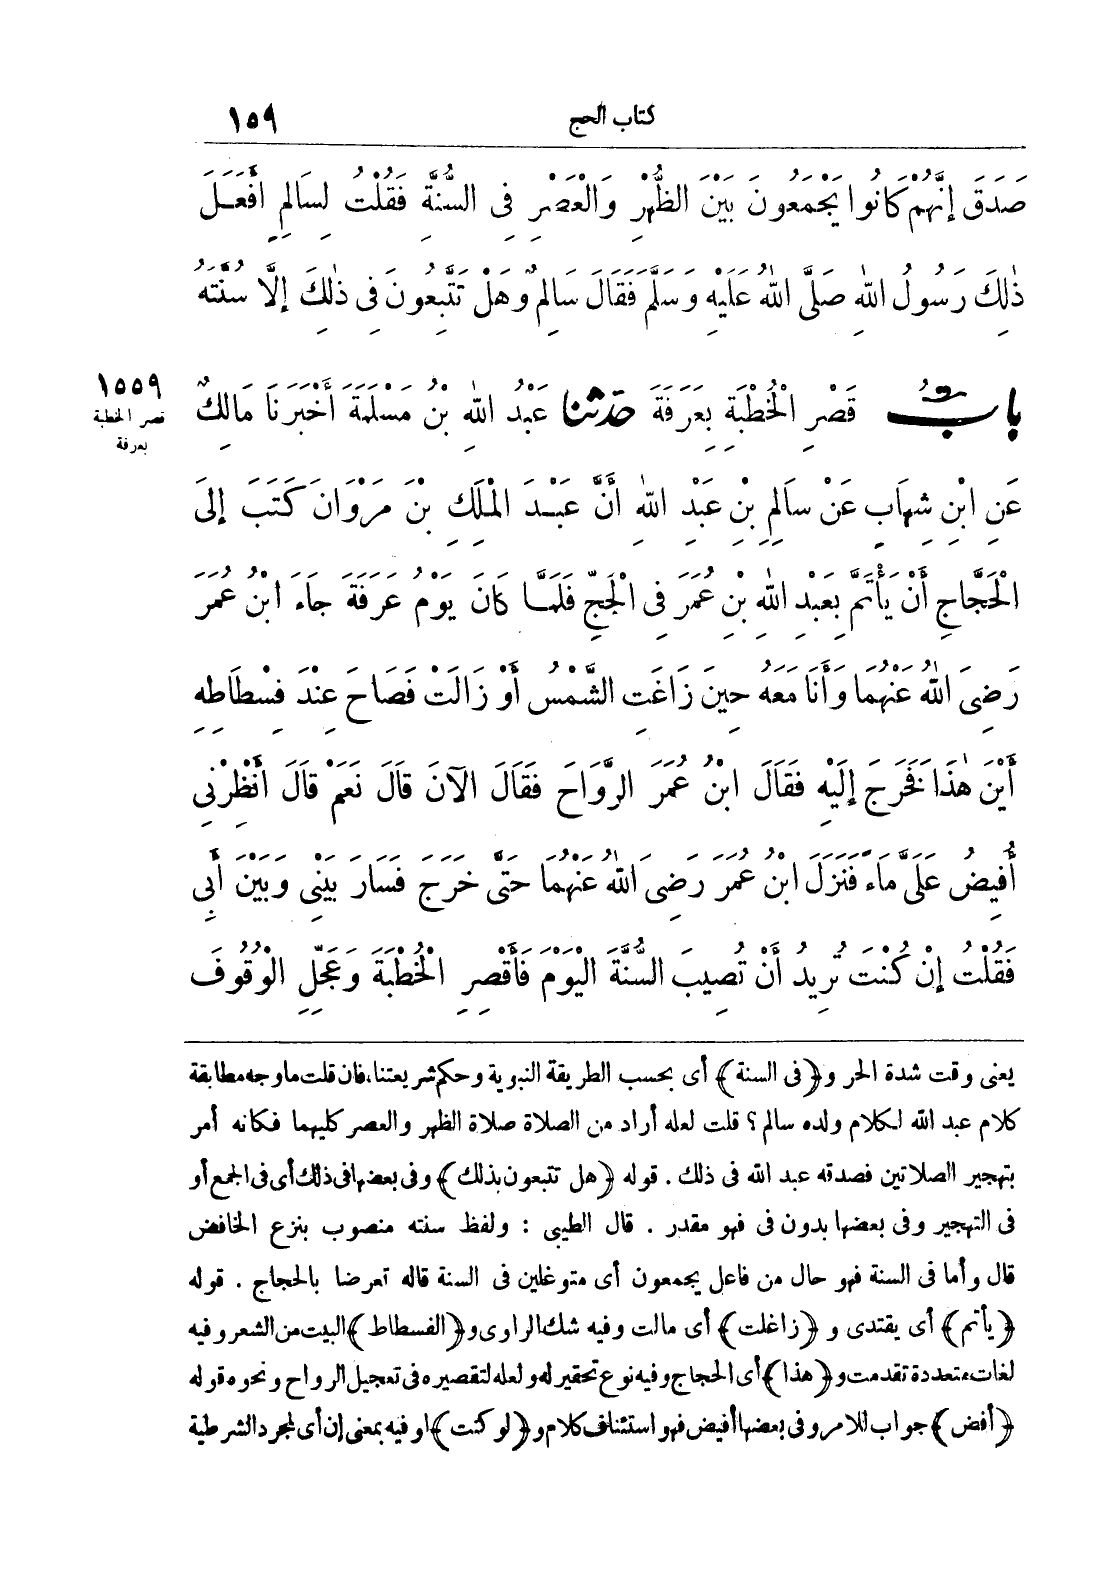 كتاب الحج ١٥٩
صَدَقَ إِنَّهُمْ كَانُوا يَجْمَعُونَ بَيْنَ الظُّهْرِ وَالْعَصْرِ فِى السُّنَّةِ فَقُلْتُ لِسَالِمٍ أَفَعَلَ
ذٰلِكَ رَسُولُ اللهِ صَلَّى اللهُ عَلَيْهِ وَسَلَّمَ فَقَالَ سَالِمٌ وَهَلْ تَتَّبِعُونَ فِى ذٰلِكَ إِلَّا سُنَّتَهُ
بابُ قَصْرِ الْخُطْبَةِ بِعَرَفَةَ حدثنا عَبْدُ اللهِ بْنُ مَسْلَمَةَ أَخْبَرَنَا مَالِكٌ
١٥٥٩
قصر الخطبة
بعرفة
عَنِ ابْنِ شِهَابٍ عَنْ سَالِمِ بْنِ عَبْدِ اللهِ أَنَّ عَبْدَ الْمَلِكِ بْنَ مَرْوَانَ كَتَبَ إِلَى
الْحَجَّاجِ أَنْ يَأْتَمَّ بِعَبْدِ اللهِ بْنِ عُمَرَ فِى الْحَجِّ فَلَمَّا كَانَ يَوْمُ عَرَفَةَ جَاءَ ابْنُ عُمَرَ
رَضِىَ اللهُ عَنْهُمَا وَأَنَا مَعَهُ حِينَ زَاغَتِ الشَّمْسُ أَوْ زَالَتْ فَصَاحَ عِنْدَ فِسْطَاطِهِ
أَيْنَ هٰذَا فَخَرَجَ إِلَيْهِ فَقَالَ ابْنُ عُمَرَ الرَّوَاحَ فَقَالَ الآنَ قَالَ نَعَمْ قَالَ أَنْظِرْنِى
أُفِيضُ عَلَىَّ مَاءً فَنَزَلَ ابْنُ عُمَرَ رَضِىَ اللهُ عَنْهُمَا حَتَّى خَرَجَ فَسَارَ بَيْنِى وَبَيْنَ أَبِى
فَقُلْتُ إِنْ كُنْتَ تُرِيدُ أَنْ تُصِيبَ السُّنَّةَ الْيَوْمَ فَاقْصِرِ الْخُطْبَةَ وَعَجِّلِ الْوُقُوفَ
يعنى وقت شدة الحر و﴿فى السنة﴾ أى بحسب الطريقة النبوية وحكم شريعتنا، فان قلت ما وجه مطابقة
كلام عبد الله لكلام ولده سالم؟ قلت لعله أراد من الصلاة صلاة الظهر والعصر كليهما فكانه أمر
بتهجير الصلاتين فصدقه عبد الله فى ذلك . قوله ﴿هل تتبعون بذلك﴾ وفى بعضها فى ذلك أى فى الجمع أو
فى التهجير وفى بعضها بدون فى فهو مقدر . قال الطيبى : ولفظ سنته منصوب بنزع الخافض
قال وأما فى السنة فهو حال من فاعل يجمعون أى متوغلين فى السنة قاله تعرضا بالحجاج . قوله
﴿يأتم﴾ أى يقتدى و﴿زاغت﴾ أى مالت وفيه شك الراوى و﴿الفسطاط﴾ البيت من الشعر وفيه
لغات متعددة تقدمت و﴿هذا﴾ أى الحجاج وفيه نوع تحقير له ولعله لتقصيره فى تعجيل الرواح ونحوه قوله
﴿أفض﴾ جواب للامر وفى بعضها أفيض فهو استئناف كلام و﴿لو كنت﴾ لو فيه بمعنى إن أى لمجرد الشرطية